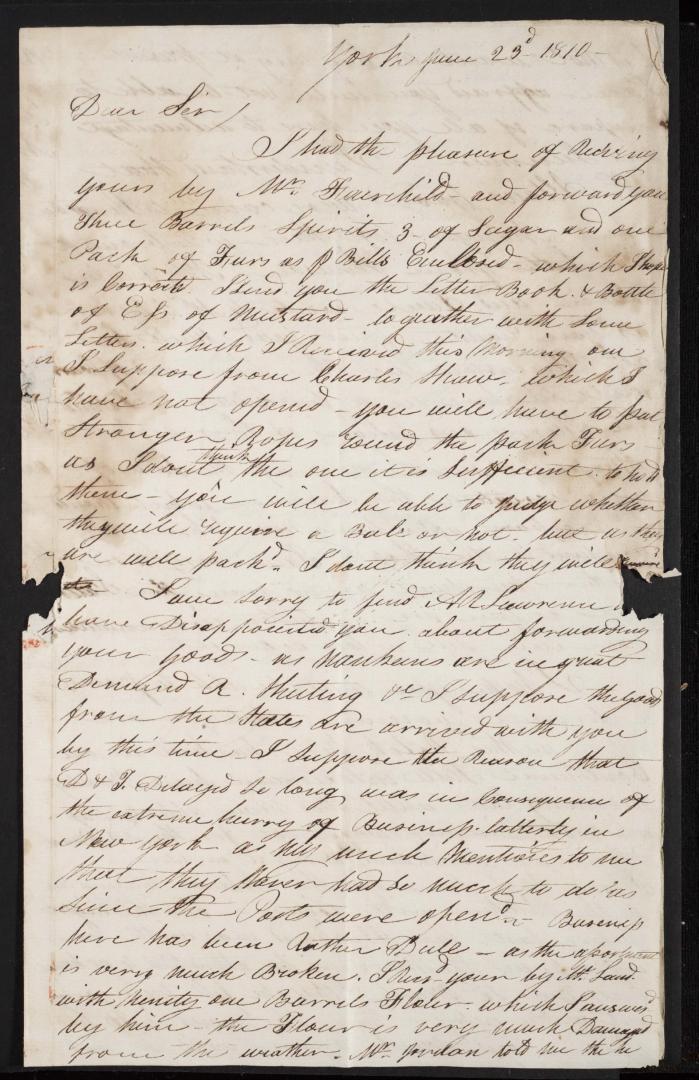 York June 23d 1810 -
Dear Sir /
I had the pleasure of Reciving
yours by Mr Fairchild - and forward you
Three Barrels Spirits 3 of Sugar and one
Pack of Furs as p Bills Enclosed - which I hope
is Correct. I Send you the Letter Book. & Bottle
of Ess of Mustard - together with Some
Letters. which I Received this Morning one
I Suppose from Charles Shaw. which I
have not opened - you will have to put
Stronger Ropes round the pack Furs
as I dont think the one it is Sufficient to hold
them - you will be able to Judge whether
they will require a Bale or not. but as they
are well pack'd. I dont think they will require
it - I am Sorry to find Lawrence
have Disappointed you about forwarding
your goods - as Nankeens are in great
Demand &c I Suppose the goods
from the States are arrived with you
by this time - I Suppose the Reason that
D & T. Delay'd So long was in Consequence of
the extreme hurry of Business latterly in
New York as mentions to me
that they Never had So much to do as
Since the Ports were open'd - Business
here has been Rather Dull - as the asortment
is very much Broken. I Recd your by Mr
with ninty one Barrels Flour. which I answerd
by him - the Flour is very much Damaged
from the weather. Mr Jordan told me the he